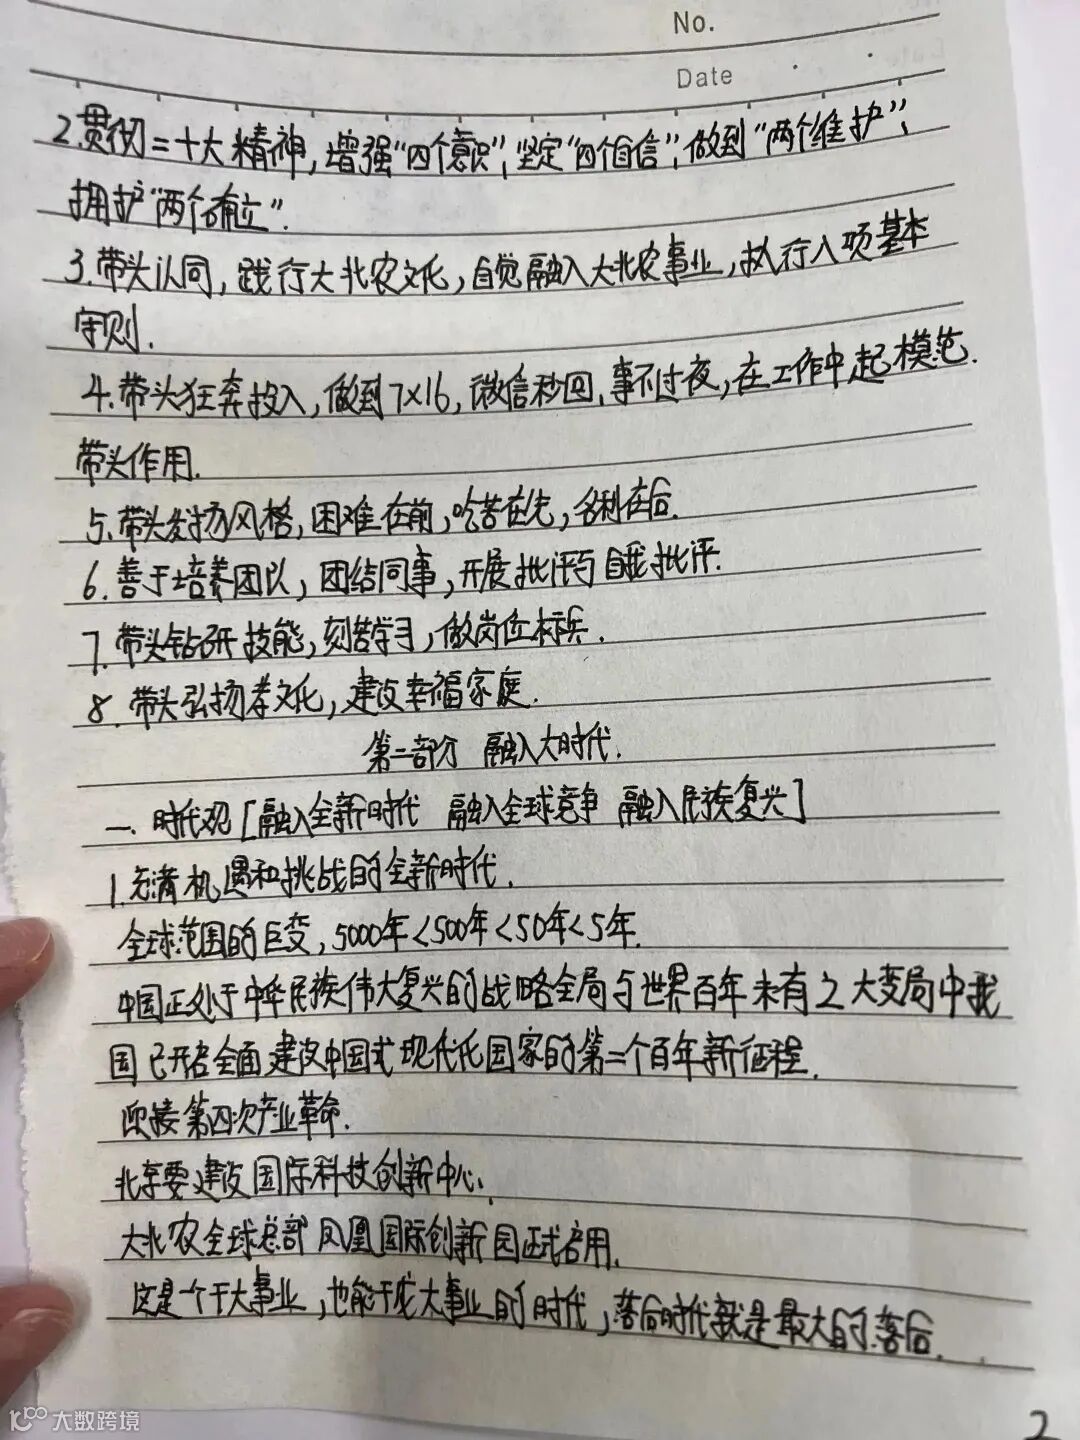 No.
Date
2.贯彻二十大精神，增强“四个意识”，坚定“四个自信”，做到“两个维护”，
拥护“两个确立”.
3.带头认同，践行大北农文化，自觉融入大北农事业，执行八项基本
守则.
4.带头狂奔投入，做到7×16，微信秒回，事不过夜，在工作中起模范.
带头作用.
5.带头发扬风格，困难在前，吃苦在先，名利在后.
6.善于培养团队，团结同事，开展批评与自我批评.
7.带头钻研技能，刻苦学习，做岗位标兵.
8.带头弘扬孝文化，建设幸福家庭.
第二部分 融入大时代.
一.时代观[融入全新时代 融入全球竞争 融入民族复兴]
1.充满机遇和挑战的全新时代.
全球范围的巨变，5000年<500年<50年<5年.
中国正处于中华民族伟大复兴的战略全局与世界百年未有之大变局中我
国已开启全面建设中国式现代化国家的第二个百年新征程.
迎接第四次产业革命.
北京要建设国际科技创新中心.
大北农全球总部凤凰国际创新园正式启用.
这是一个干大事业，也能干成大事业的时代，落后时代就是最大的落后.
2
大数跨境